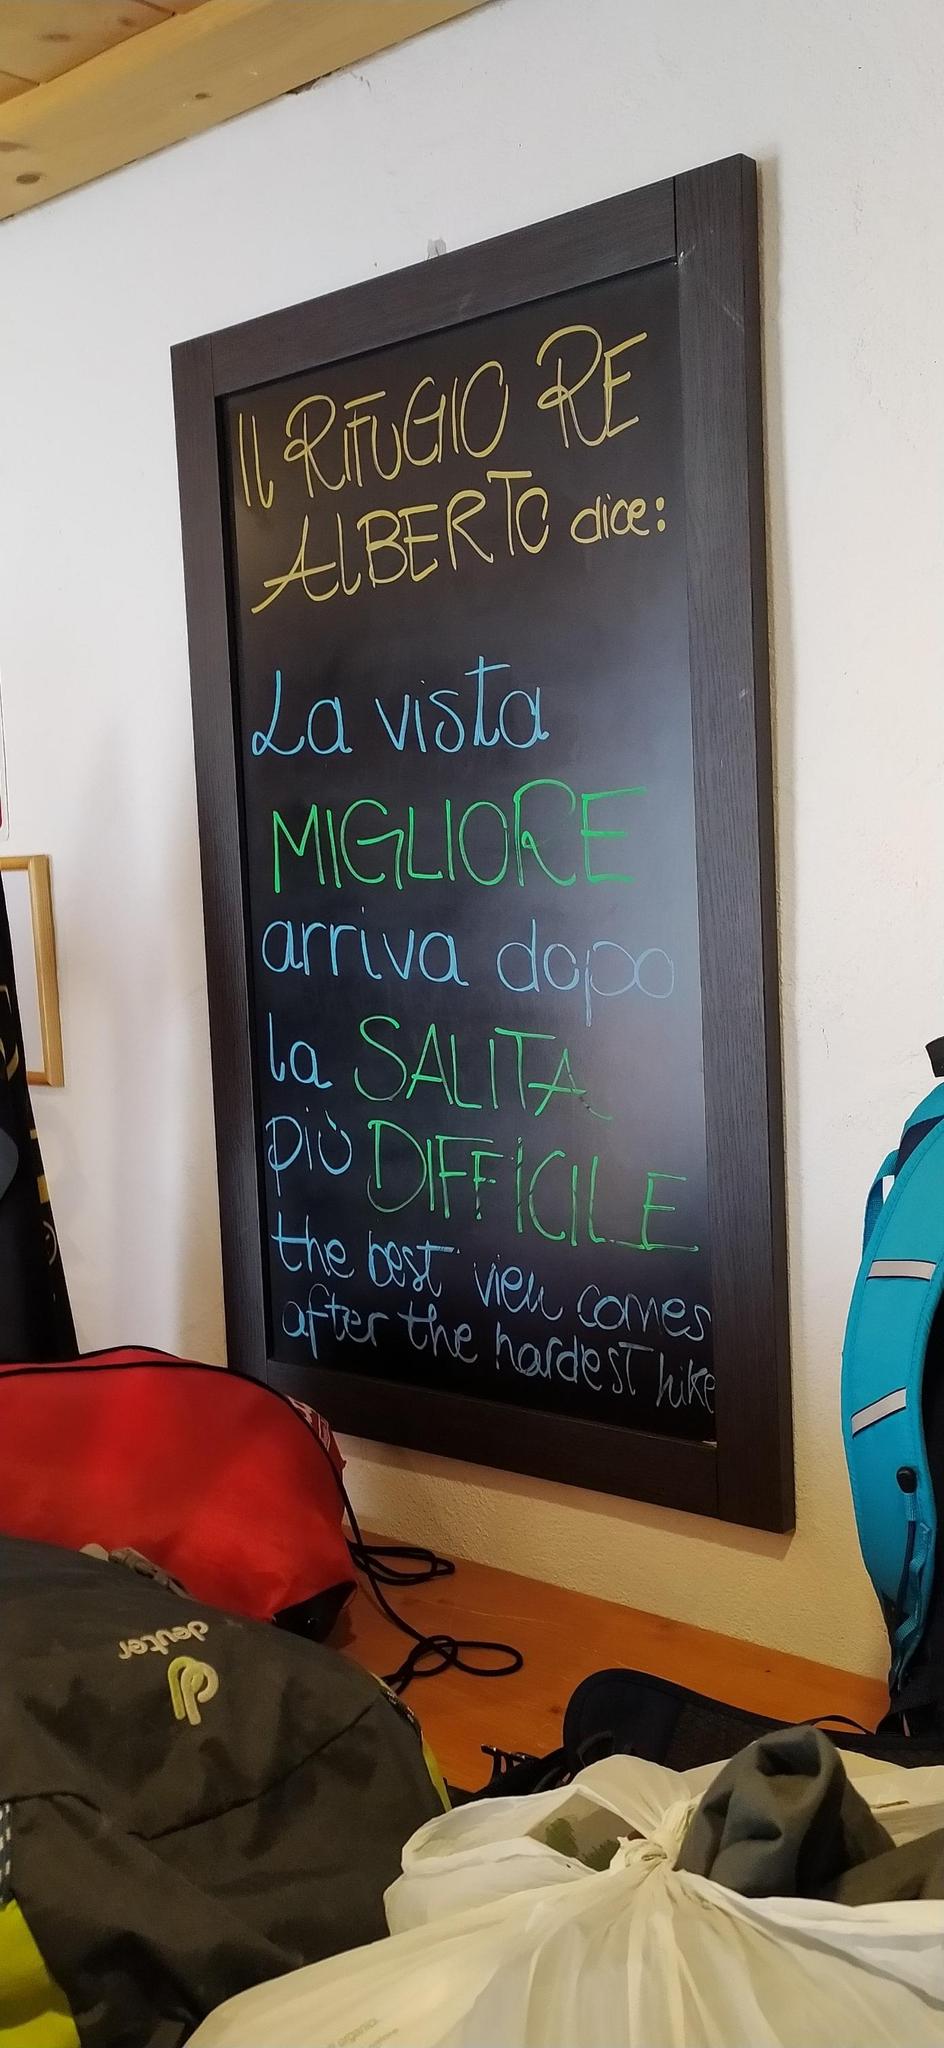 Il RIFUGIO RE
AlBERTO dice:
La vista
MIGLIORE
arriva dopo
la SALITA
più DIFFICILE
the best view comes
after the hardest hike
deuter